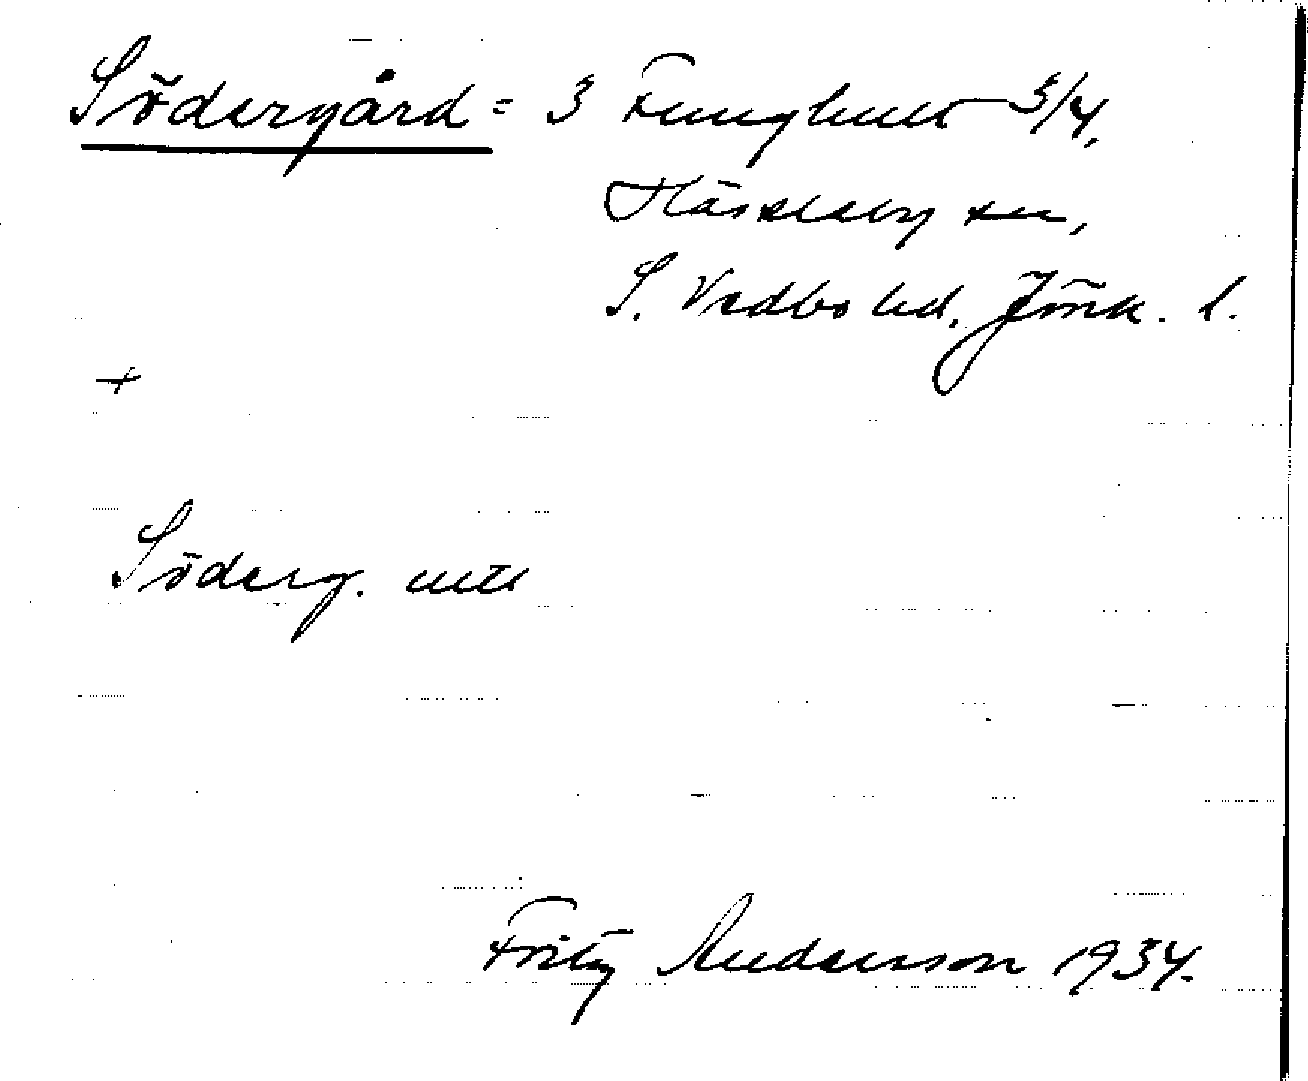 Södergård = 3 Funghult 3/4,
Hässleby sn,
S. Vedbo hd. Jönk. l.
+
Söderg.
Fritz Andersson 1934.